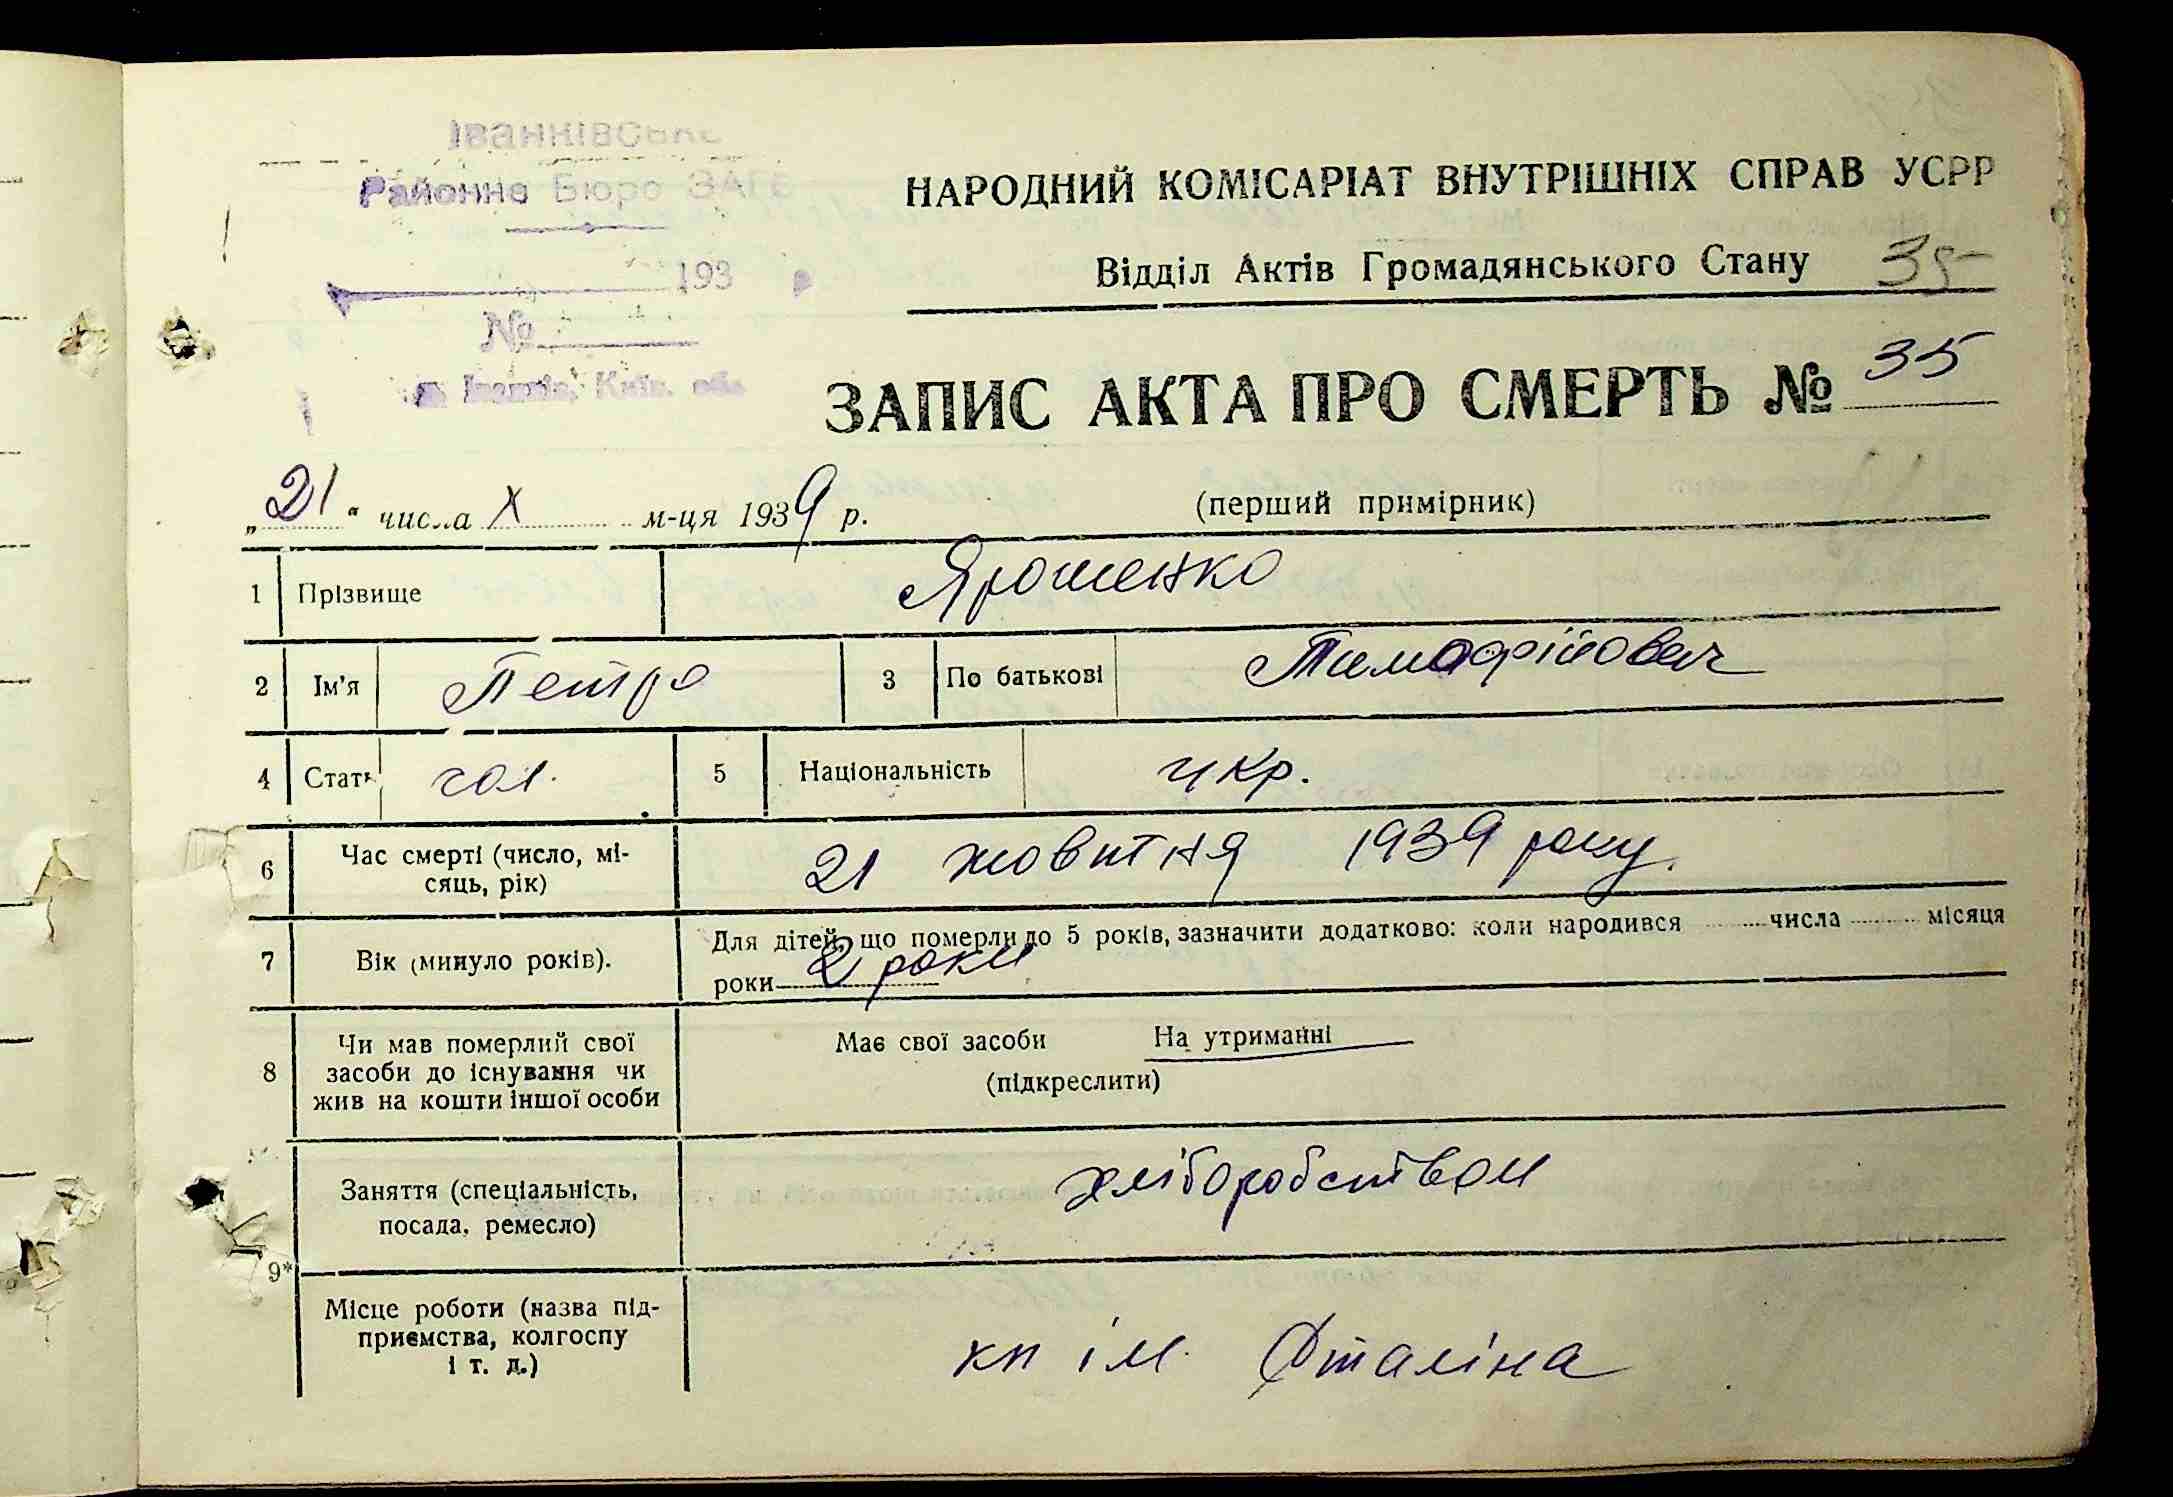 Іванківське
Районне Бюро ЗАГС
193
№
Іванків, Київ. обл
НАРОДНИЙ КОМІСАРІАТ ВНУТРІШНІХ СПРАВ УСРР
Відділ Актів Громадянського Стану 35
ЗАПИС АКТА ПРО СМЕРТЬ № 35
„21“ числа X м-ця 1939 р. (перший примірник)
1 Прізвище Ярошенко
2 Ім'я Петро 3 По батькові Тимофійович
4 Стать чол. 5 Національність укр.
6 Час смерті (число, мі-
сяць, рік) 21 жовтня 1939 року.
7 Вік (минуло років). Для дітей, що померли до 5 років, зазначити додатково: коли народився числа місяця
роки 2 роки
8 Чи мав померлий свої
засоби до існування чи
жив на кошти іншої особи
Має свої засоби На утриманні
(підкреслити)
9*
Заняття (спеціальність,
посада, ремесло) хліборобством
Місце роботи (назва під-
приємства, колгоспу
і т. д.) кп ім. Сталіна